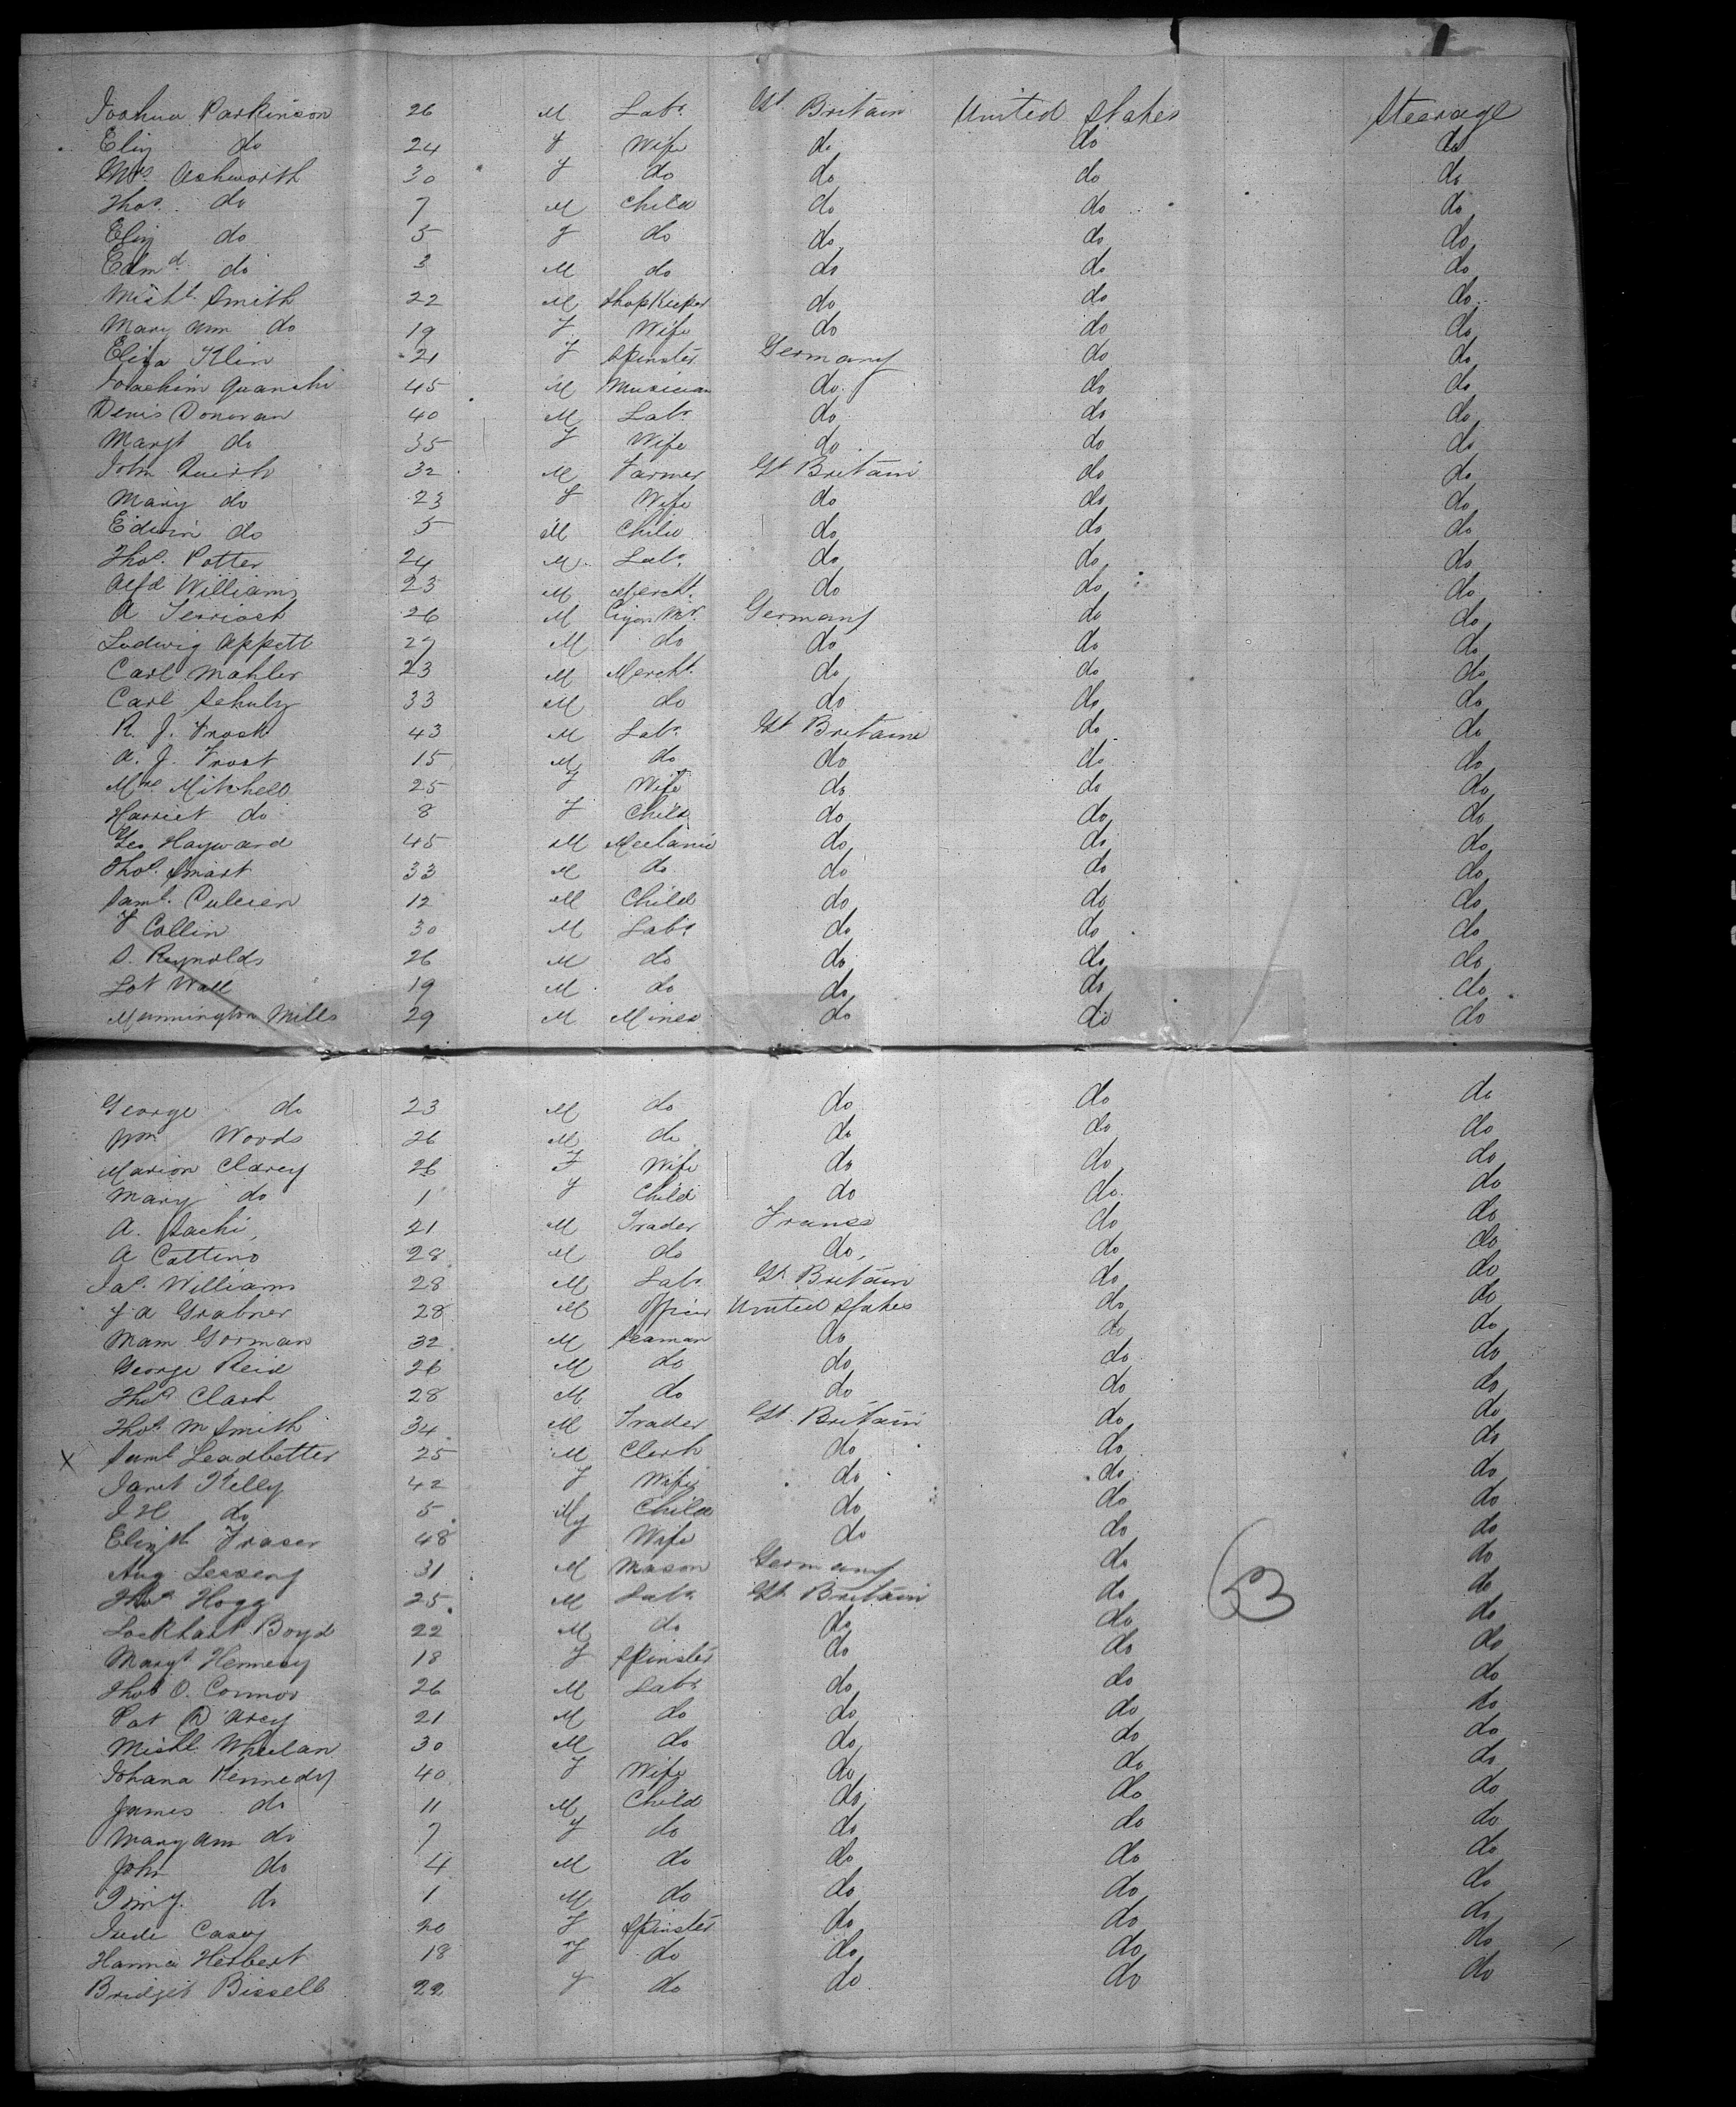 Joshua Parkinson 26 M Labr. Gt. Britain United States Steerage
Eliz do 24 F Wife do do do
Mrs. Ashworth 30 F do do do do
Thos. do 7 M Child do do do
Eliz do 5 F do do do do
Edmd. do 3 M do do do do
Michl. Smith 22 M Shopkeeper do do do
Mary Ann do 19 F Wife do do do
Eliza Klin 21 F Spinster Germany do do
Joachim Quanchi 45 M Musician do do do
Denis Donovan 40 M Labr do do do
Margt do 35 F Wife do do do
John Quirk 32 M Farmer Gt Britain do do
Mary do 23 F Wife do do do
Edwin do 5 M Child do do do
Thos. Potter 24 M Labr. do do do
Alfd Williams 23 M Mercht. do do do
A 26 M Cigar Mr. Germany do do
Ludwig Appett 27 M do do do do
Carl Mahler 23 M Mercht. do do do
Carl Schulz 33 M do do do do
R. J. Frost 43 M Labr. Gt Britain do do
A. J. Frost 15 M do do do do
Mitchell 25 F Wife do do do
Harriet do 8 F Child do do do
Geo Hayward 45 M Mechanic do do do
Thos. Smart 33 M do do do do
Saml. 12 M Child do do do
F Collin 30 M Labr do do do
D. Reynolds 26 M do do do do
Lot Wall 19 M do do do do
Mannington Mills 29 M Miner do do do
George do 23 M do do do do
Wm Woods 26 M do do do do
Marion Clarey 26 F Wife do do do
Mary do 1 F Child do do do
A. Sachi 21 M Trader France do do
A Cottino 28 M do do do do
Jas. Williams 28 M Labr Gt Britain do do
J A Grabner 28 M Officer United States do do
Mam Gorman 32 M Seaman do do do
George Reid 26 M do do do do
Thos Clark 28 M do do do do
Thos M Smith 34 M Trader Gt. Britain do do
X Saml Leadbetter 25 M Clerk do do do
Janet Kelly 42 F Wife do do do
J H do 5 M Child do do do
Elizth Fraser 48 F Wife do do do
Aug Lesseny 31 M Mason Germany do do
Thos Hogg 25 M Labr Gt Britain do 63 do
Lockhart Boyd 22 M do do do do
Margt Hennesy 18 F Spinster do do do
Thos O. Connor 26 M Labr do do do
Pat D Arcy 21 M do do do do
Michl. Wheelan 30 M do do do do
Johana Kennedy 40 F Wife do do do
James do 11 M Child do do do
Mary Ann do 7 F do do do do
John do 4 M do do do do
Timy. do 1 M do do do do
Jude Casey 20 F Spinster do do do
Hanna Herbert 18 F do do do do
Bridget Bissell 22 F do do do do